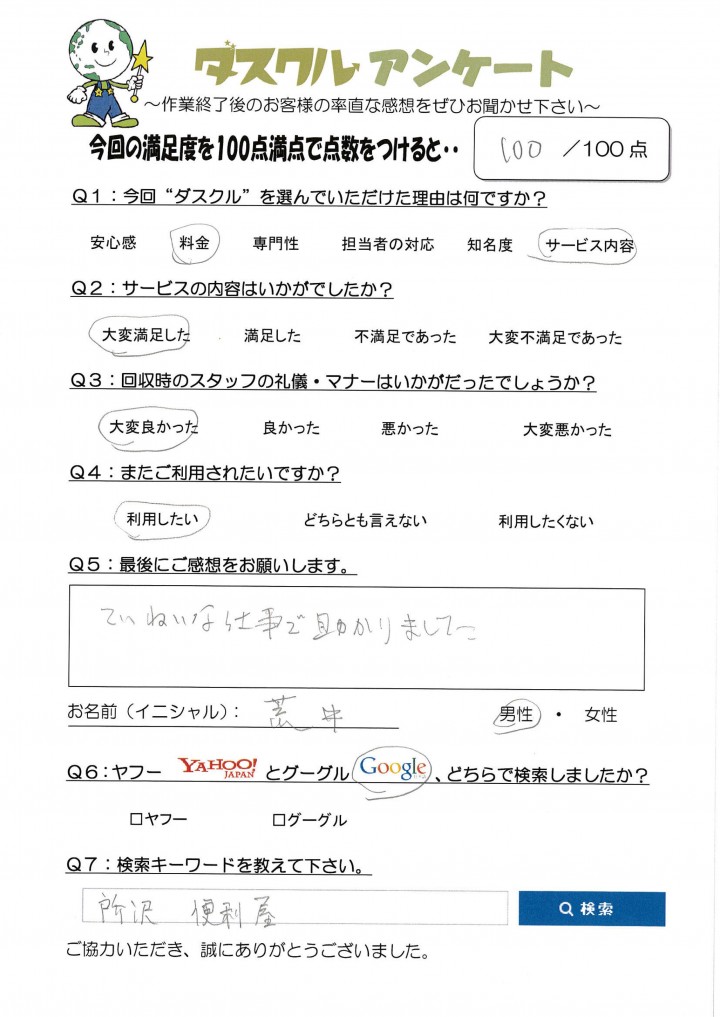 ダスクル アンケート
～作業終了後のお客様の率直な感想をぜひお聞かせ下さい～
今回の満足度を100点満点で点数をつけると・・ 100 ／100点
Q1：今回“ダスクル”を選んでいただけた理由は何ですか？
安心感 料金 専門性 担当者の対応 知名度 サービス内容
Q2：サービスの内容はいかがでしたか？
大変満足した 満足した 不満足であった 大変不満足であった
Q3：回収時のスタッフの礼儀・マナーはいかがだったでしょうか？
大変良かった 良かった 悪かった 大変悪かった
Q4：またご利用されたいですか？
利用したい どちらとも言えない 利用したくない
Q5：最後にご感想をお願いします。
ていねいな仕事で助かりました
お名前（イニシャル）： 荒井 男性 ・ 女性
Q6：ヤフー YAHOO! JAPAN とグーグル Google 、どちらで検索しましたか？
□ヤフー □グーグル
Q7：検索キーワードを教えて下さい。
所沢 便利屋 検索
ご協力いただき、誠にありがとうございました。